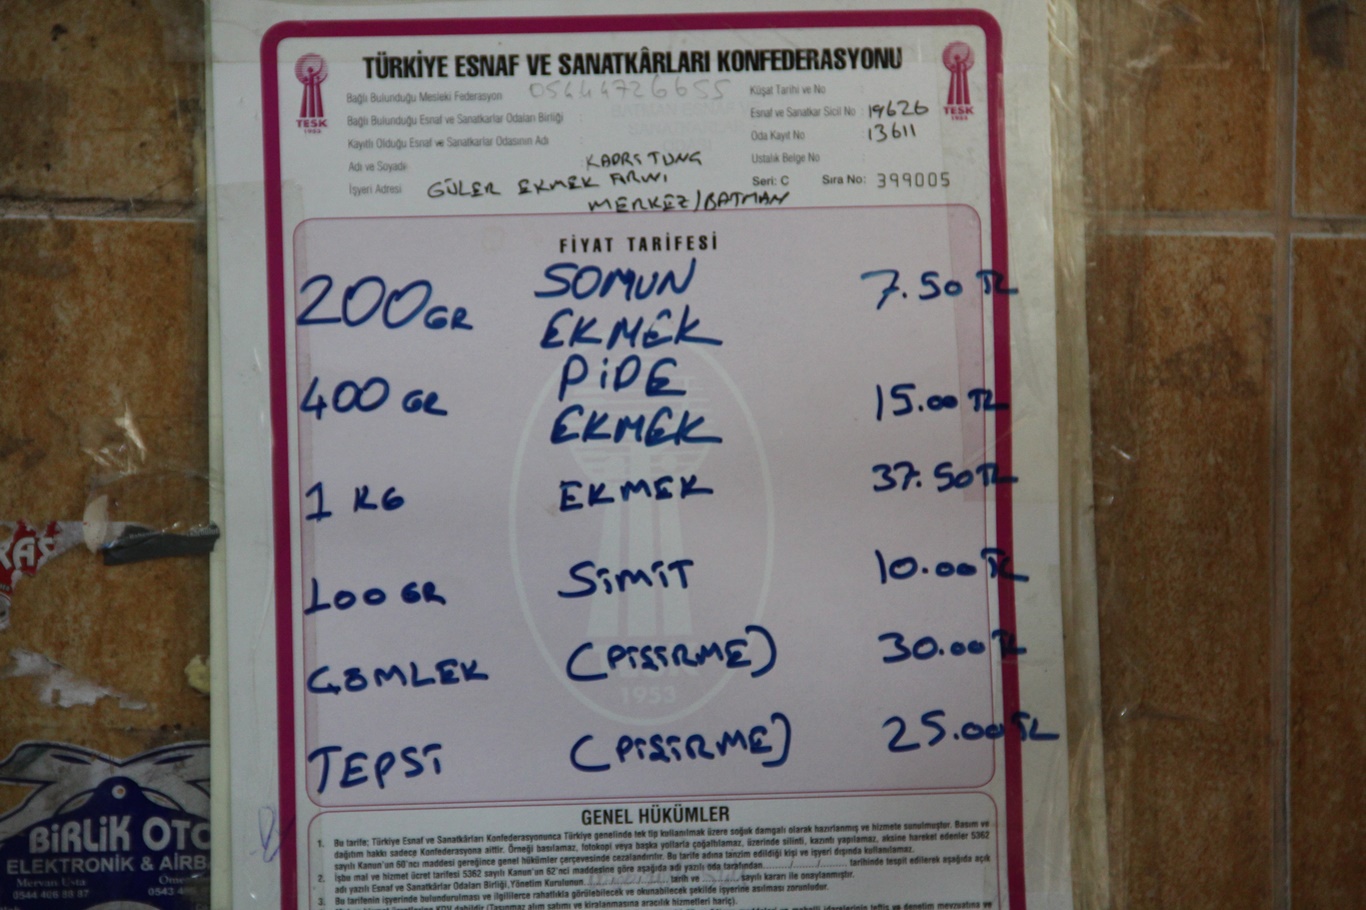 TÜRKİYE ESNAF VE SANATKÂRLARI KONFEDERASYONU
TESK
TESK
Bağlı Bulunduğu Mesleki Federasyon 05444726655
Küşat Tarihi ve No :
Bağlı Bulunduğu Esnaf ve Sanatkarlar Odaları Birliği
Esnaf ve Sanatkar Sicil No : 19626
Kayıtlı Olduğu Esnaf ve Sanatkarlar Odasının Adı
Oda Kayıt No : 13611
Adı ve Soyadı KADRİ TUNG
Ustalık Belge No :
İşyeri Adresi GÜLER EKMEK FIRINI
MERKEZ/BATMAN
Seri: C Sıra No: 399005
FİYAT TARİFESİ
200 GR SOMUN EKMEK 7.50 TL
400 GR PİDE EKMEK 15.00 TL
1 KG EKMEK 37.50 TL
100 GR SİMİT 10.00 TL
GÖMLEK (PİŞİRME) 30.00 TL
TEPSİ (PİŞİRME) 25.00 TL
1953
GENEL HÜKÜMLER
1. Bu tarife; Türkiye Esnaf ve Sanatkârları Konfederasyonunca Türkiye genelinde tek tip kullanılmak üzere soğuk damgalı olarak hazırlanmış ve hizmete sunulmuştur. Basım ve
dağıtım hakkı sadece Konfederasyona aittir. Örneği basılamaz, fotokopi veya başka yollarla çoğaltılamaz, üzerinde silinti, kazıntı yapılamaz, aksine hareket edenler 5362
sayılı Kanun'un 60'ncı maddesi gereğince genel hükümler çerçevesinde cezalandırılır. Bu tarife adına tanzim edildiği kişi ve işyeri dışında kullanılamaz.
2. İşbu mal ve hizmet ücret tarifesi 5362 sayılı Kanun'un 62'nci maddesine göre aşağıda adı yazılı oda tarafından tarihinde tespit edilerek aşağıda açık
adı yazılı Esnaf ve Sanatkarlar Odaları Birliği, Yönetim Kurulunun tarih ve sayılı kararı ile onaylanmıştır.
3. Bu tarifenin işyerinde bulundurulması ve ilgililerce rahatlıkla görülebilecek ve okunabilecek şekilde işyerine asılması zorunludur.
BİRLİK OTO
ELEKTRONİK & AİRB
Mervan Usta
0544 408 89 87
0543